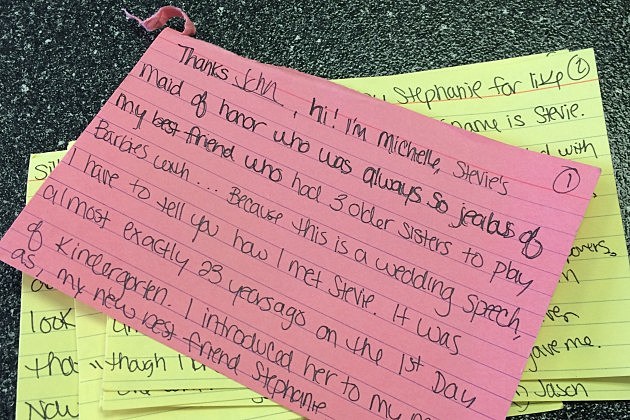 Thanks John, hi! I'm Michelle, Stevie's
maid of honor who was always so jealous of
my best friend who had 3 older sisters to play
Barbies with... Because this is a wedding speech,
I have to tell you how I met Stevie. It was
almost exactly 23 years ago on the 1st Day
of Kindergarten. I introduced her to my
as, my new best friend Stephanie
1
Stephanie for like 2
name is Stevie.
with
gave me.
Jason
look
tha
though I
Now